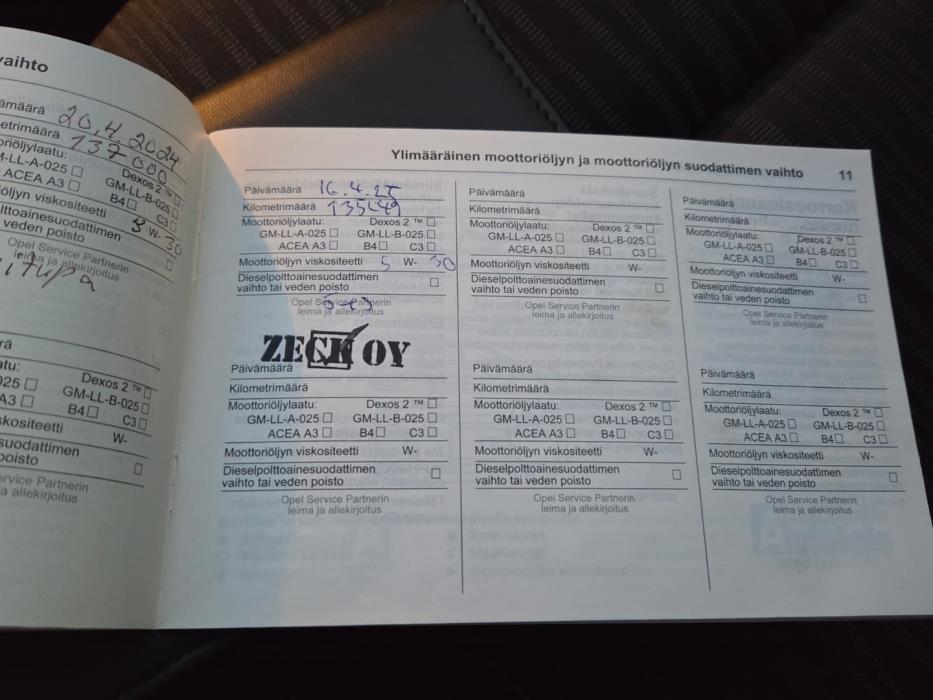 vaihto
ämäärä 20.4.2024
etrimäärä 137000
oriöljylaatu: Dexos 2 ™ □
M-LL-A-025 □ GM-LL-B-025 □
ACEA A3 □ B4 □ C3 □
öljyn viskositeetti W- 30
lttoainesuodattimen
veden poisto □
Opel Service Partnerin
leima ja allekirjoitus
rä
atu: Dexos 2 ™ □
025 □ GM-LL-B-025 □
A3 □ B4 □ C3 □
skositeetti W-
suodattimen
oisto □
rvice Partnerin
a allekirjoitus
Ylimääräinen moottoriöljyn ja moottoriöljyn suodattimen vaihto 11
Päivämäärä 16.4.25
Kilometrimäärä
Moottoriöljylaatu: Dexos 2 ™ □
GM-LL-A-025 □ GM-LL-B-025 □
ACEA A3 □ B4 □ C3 □
Moottoriöljyn viskositeetti 5 W- 30
Dieselpolttoainesuodattimen
vaihto tai veden poisto □
Opel Service Partnerin
leima ja allekirjoitus
ZECK OY
Päivämäärä
Kilometrimäärä
Moottoriöljylaatu: Dexos 2 ™ □
GM-LL-A-025 □ GM-LL-B-025 □
ACEA A3 □ B4 □ C3 □
Moottoriöljyn viskositeetti W-
Dieselpolttoainesuodattimen
vaihto tai veden poisto □
Opel Service Partnerin
leima ja allekirjoitus
Päivämäärä
Kilometrimäärä
Moottoriöljylaatu: Dexos 2 ™ □
GM-LL-A-025 □ GM-LL-B-025 □
ACEA A3 □ B4 □ C3 □
Moottoriöljyn viskositeetti W-
Dieselpolttoainesuodattimen
vaihto tai veden poisto □
Opel Service Partnerin
leima ja allekirjoitus
Päivämäärä
Kilometrimäärä
Moottoriöljylaatu: Dexos 2 ™ □
GM-LL-A-025 □ GM-LL-B-025 □
ACEA A3 □ B4 □ C3 □
Moottoriöljyn viskositeetti W-
Dieselpolttoainesuodattimen
vaihto tai veden poisto □
Opel Service Partnerin
leima ja allekirjoitus
Päivämäärä
Kilometrimäärä
Moottoriöljylaatu: Dexos 2 ™ □
GM-LL-A-025 □ GM-LL-B-025 □
ACEA A3 □ B4 □ C3 □
Moottoriöljyn viskositeetti W-
Dieselpolttoainesuodattimen
vaihto tai veden poisto □
Opel Service Partnerin
leima ja allekirjoitus
Päivämäärä
Kilometrimäärä
Moottoriöljylaatu: Dexos 2 ™ □
GM-LL-A-025 □ GM-LL-B-025 □
ACEA A3 □ B4 □ C3 □
Moottoriöljyn viskositeetti W-
Dieselpolttoainesuodattimen
vaihto tai veden poisto □
Opel Service Partnerin
leima ja allekirjoitus